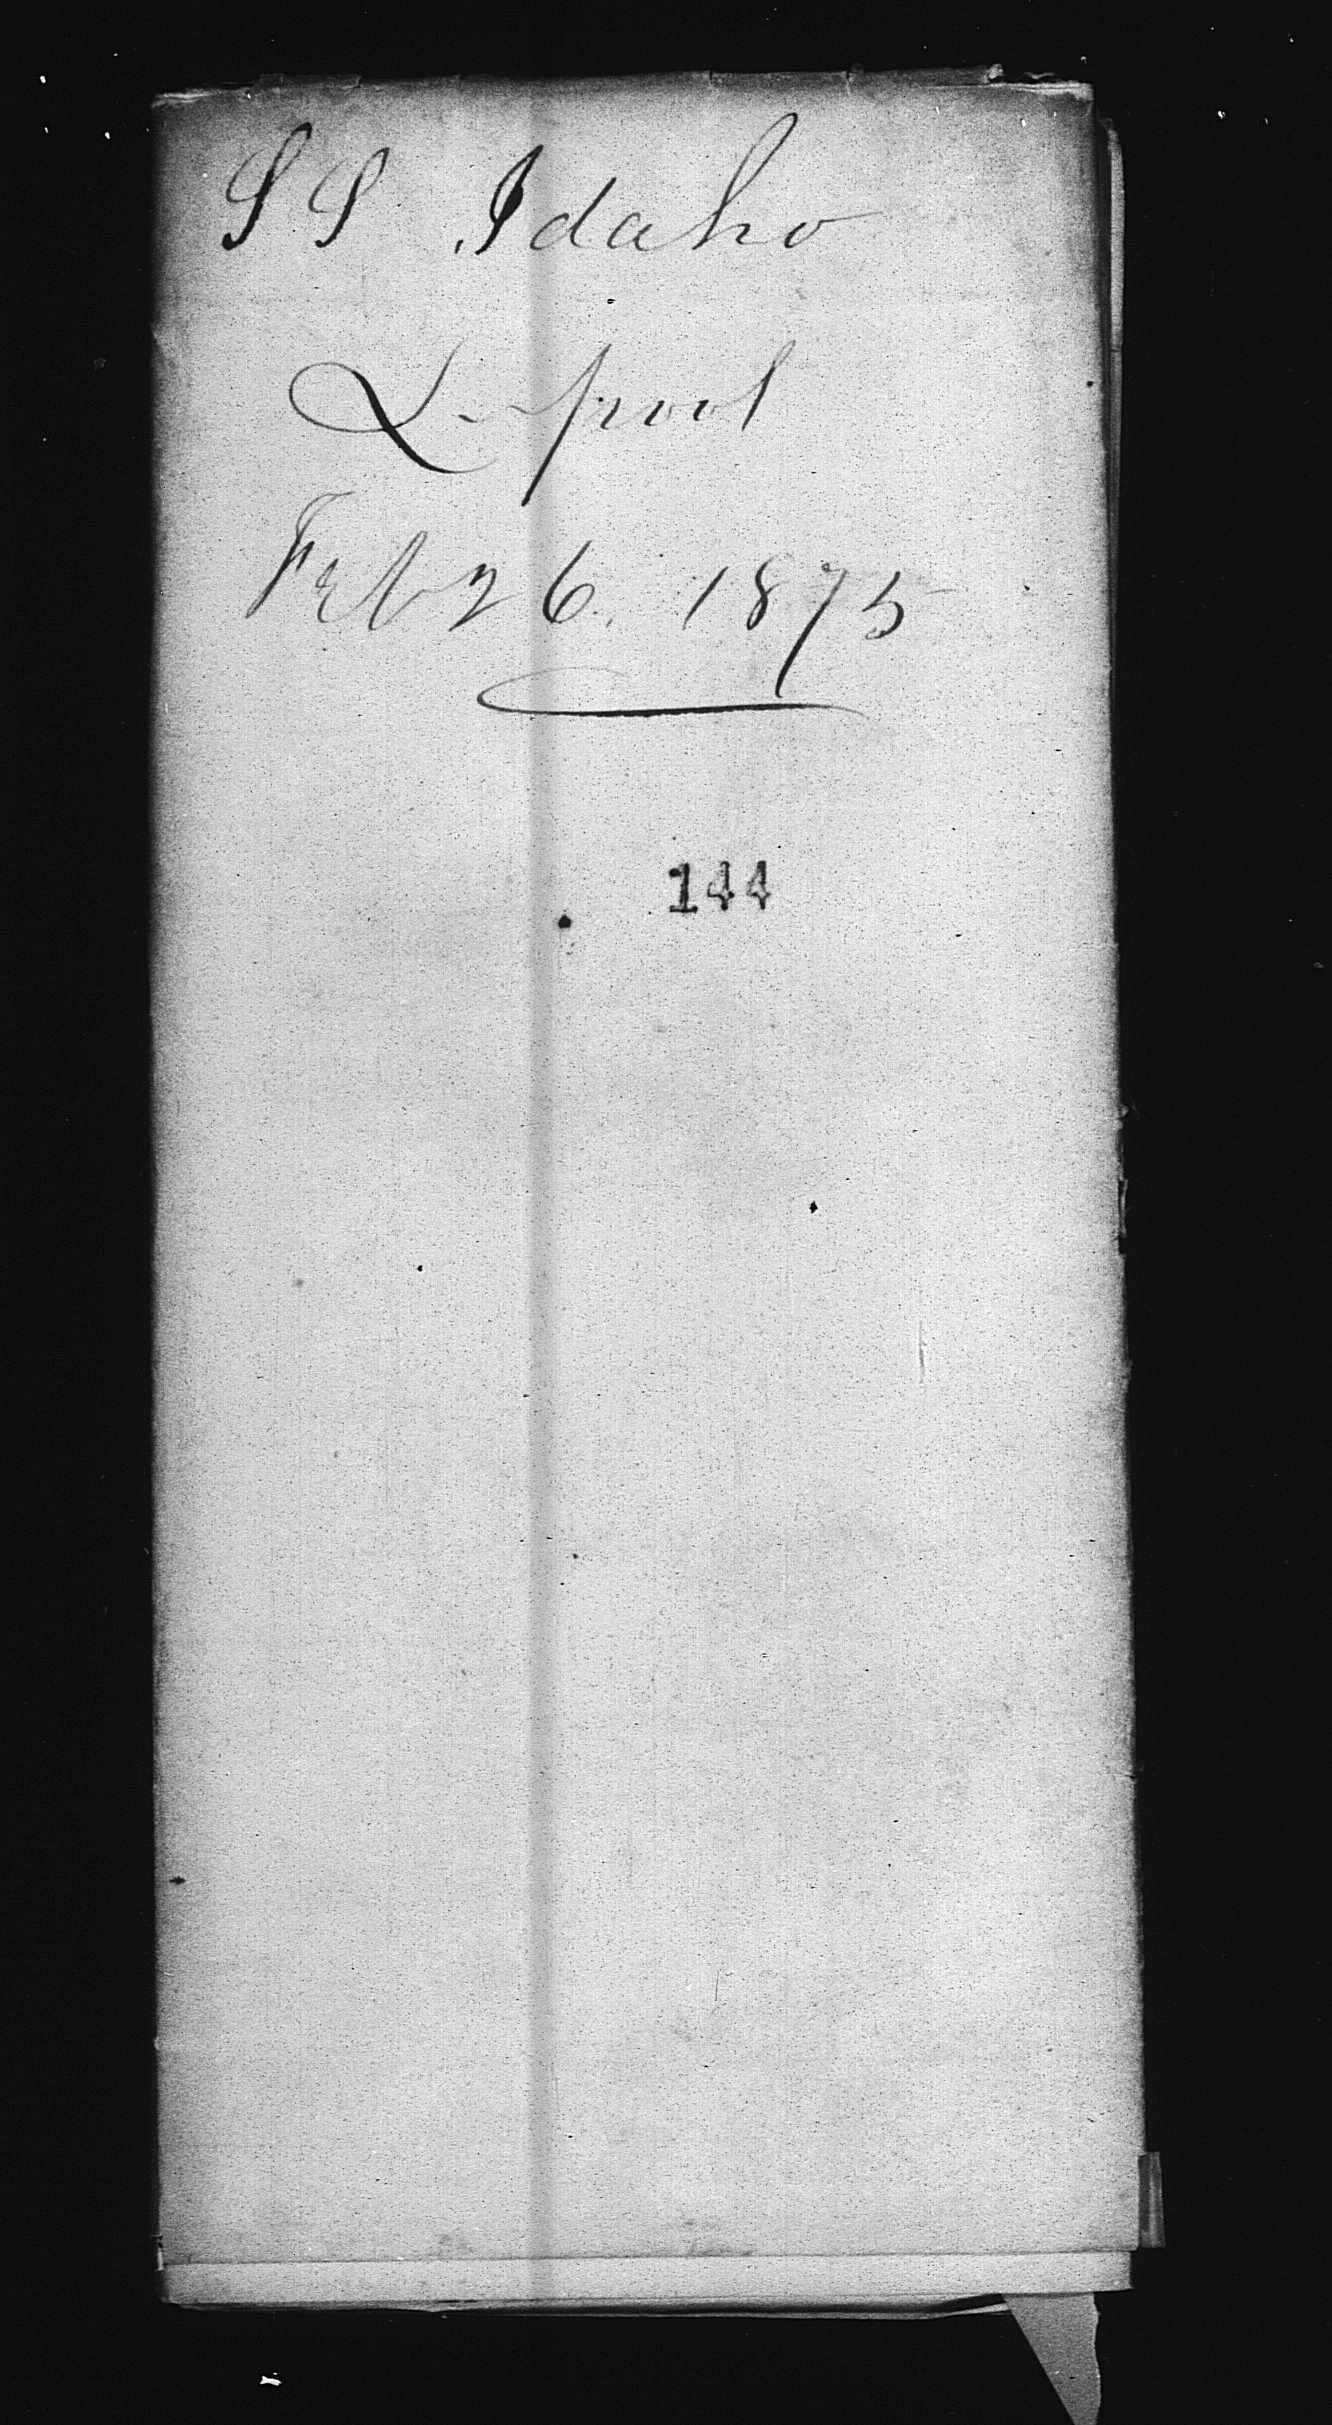 SS Idaho
L-pool
Feb 26. 1875
144